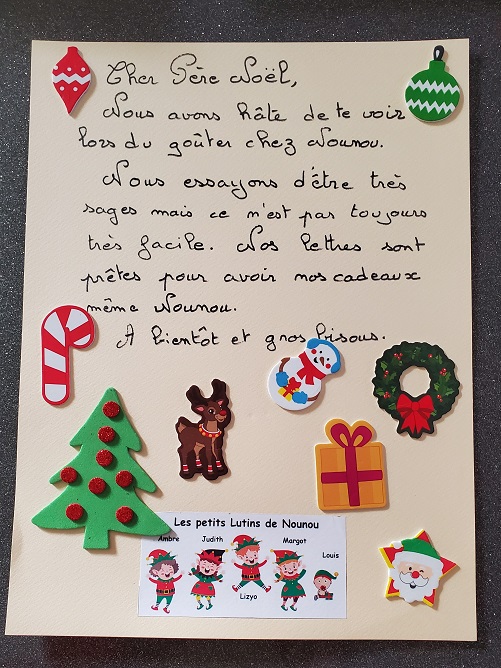 Cher Père Noël,
Nous avons hâte de te voir
lors du goûter chez Nounou.
Nous essayons d'être très
sages mais ce n'est pas toujours
très facile. Nos lettres sont
prêtes pour avoir nos cadeaux
même Nounou.
A bientôt et gros bisous.
Les petits Lutins de Nounou
Ambre Judith Margot
Louis
Lizyo